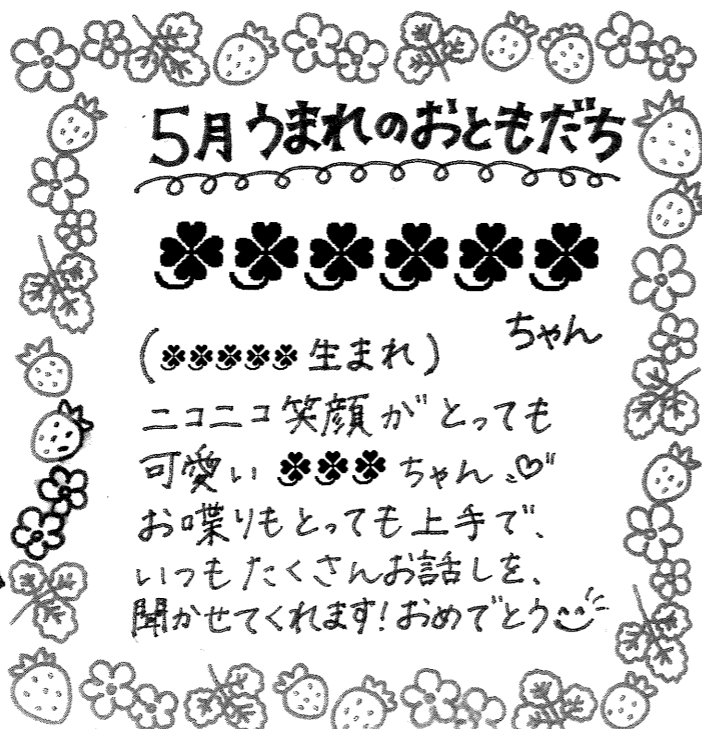 5月うまれのおともだち
ちゃん
(生まれ)
ニコニコ笑顔がとっても
可愛いちゃん
お喋りもとっても上手で、
いつもたくさんお話しを、
聞かせてくれます!おめでとう